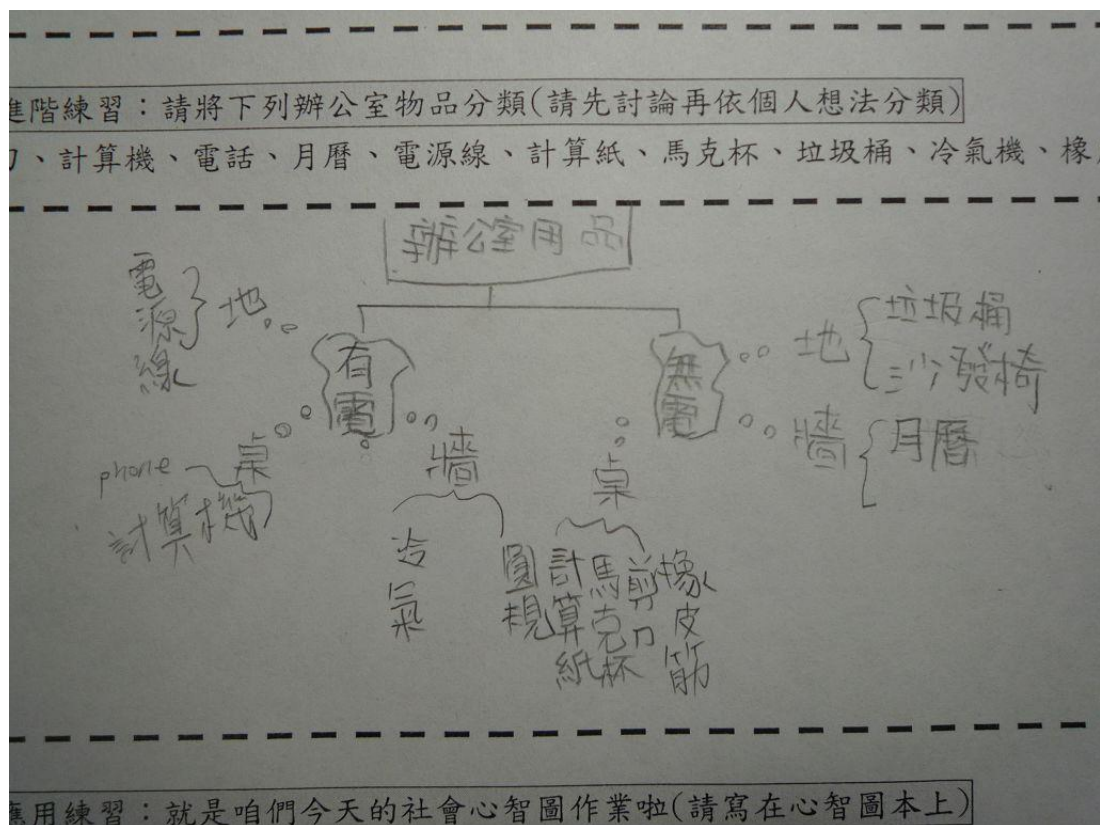 進階練習：請將下列辦公室物品分類(請先討論再依個人想法分類)
刀、計算機、電話、月曆、電源線、計算紙、馬克杯、垃圾桶、冷氣機、橡
辦公室用品
有電
地
電源線
桌
phone
計算機
牆
冷氣
無電
地
垃圾桶
沙發椅
牆
月曆
桌
圓規
計算紙
馬克杯
剪刀
橡皮筋
應用練習：就是咱們今天的社會心智圖作業啦(請寫在心智圖本上)